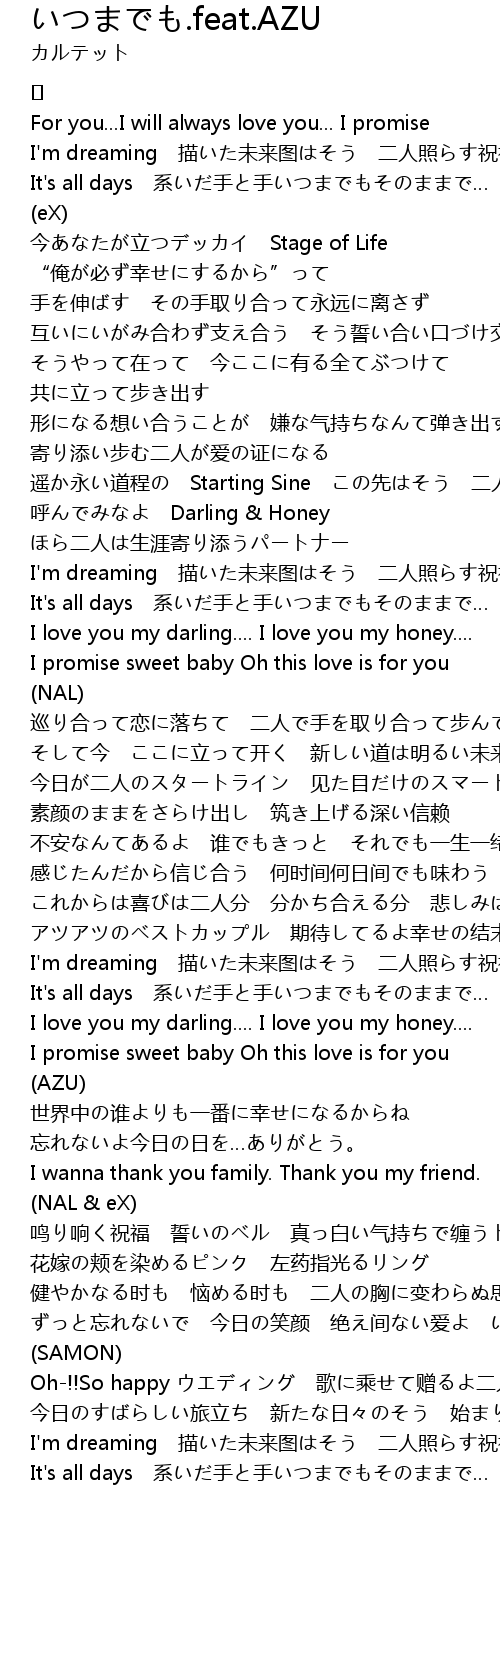 いつまでも.feat.AZU
カルテット
[]
For you...I will always love you... I promise
I'm dreaming　描いた未来图はそう　二人照らす祝
It's all days　系いだ手と手いつまでもそのままで...
(eX)
今あなたが立つデッカイ　Stage of Life
“俺が必ず幸せにするから”って
手を伸ばす　その手取り合って永远に离さず
互いにいがみ合わず支え合う　そう誓い合い口づけ交
そうやって在って　今ここに有る全てぶつけて
共に立って歩き出す
形になる想い合うことが　嫌な气持ちなんて弹き出す
寄り添い步む二人が爱の证になる
遥か永い道程の　Starting Sine　この先はそう　二人
呼んでみなよ　Darling & Honey
ほら二人は生涯寄り添うパートナー
I'm dreaming　描いた未来图はそう　二人照らす祝
It's all days　系いだ手と手いつまでもそのままで...
I love you my darling.... I love you my honey....
I promise sweet baby Oh this love is for you
(NAL)
巡り合って恋に落ちて　二人で手を取り合って步んで
そして今　ここに立って开く　新しい道は明るい未来
今日が二人のスタートライン　见た目だけのスマート
素颜のままをさらけ出し　筑き上げる深い信赖
不安なんてあるよ　谁でもきっと　それでも一生一绪
感じたんだから信じ合う　何时间何日间でも味わう
これからは喜びは二人分　分かち合える分　悲しみは
アツアツのベストカップル　期待してるよ幸せの结末
I'm dreaming　描いた未来图はそう　二人照らす祝
It's all days　系いだ手と手いつまでもそのままで...
I love you my darling.... I love you my honey....
I promise sweet baby Oh this love is for you
(AZU)
世界中の谁よりも一番に幸せになるからね
忘れないよ今日の日を...ありがとう。
I wanna thank you family. Thank you my friend.
(NAL & eX)
鸣り响く祝福　誓いのベル　真っ白い气持ちで缠うド
花嫁の颊を染めるピンク　左药指光るリング
健やかなる时も　恼める时も　二人の胸に变わらぬ思
ずっと忘れないで　今日の笑颜　绝え间ない爱よ　い
(SAMON)
Oh-!!So happy ウエディング　歌に乘せて赠るよ二人
今日のすばらしい旅立ち　新たな日々のそう　始まり
I'm dreaming　描いた未来图はそう　二人照らす祝
It's all days　系いだ手と手いつまでもそのままで...